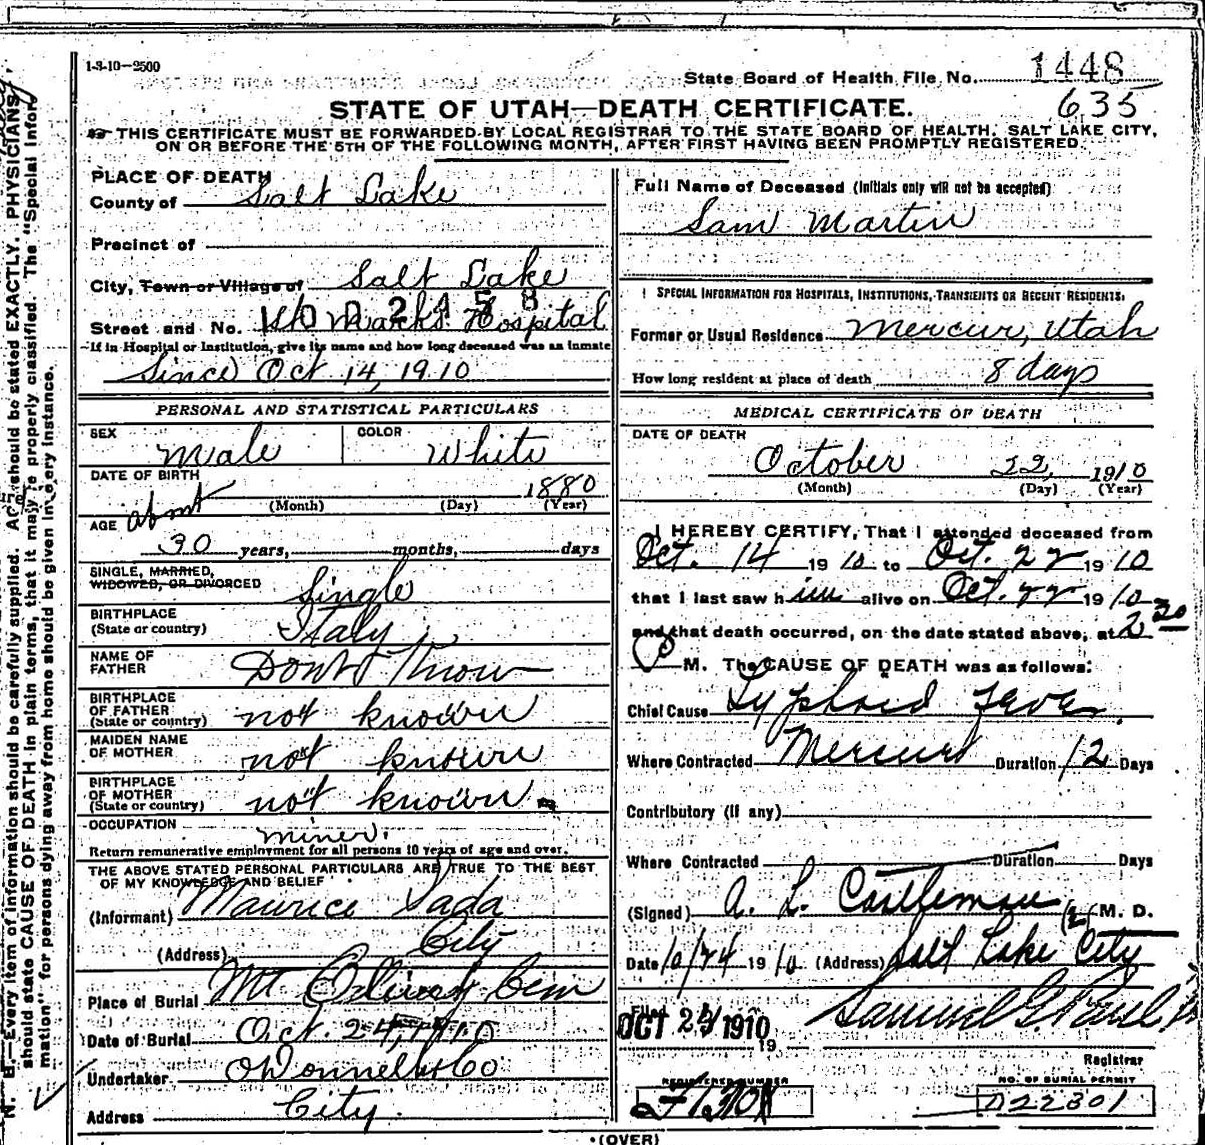 1-3-10—2500
State Board of Health File No. 1448
635
STATE OF UTAH—DEATH CERTIFICATE.
THIS CERTIFICATE MUST BE FORWARDED BY LOCAL REGISTRAR TO THE STATE BOARD OF HEALTH, SALT LAKE CITY,
ON OR BEFORE THE 5TH OF THE FOLLOWING MONTH, AFTER FIRST HAVING BEEN PROMPTLY REGISTERED.
PLACE OF DEATH
County of Salt Lake
Precinct of
City, Town or Village of Salt Lake
Street and No. Marks Hospital
If in Hospital or Institution, give its name and how long deceased was an inmate
Since Oct 14, 1910
PERSONAL AND STATISTICAL PARTICULARS
SEX Male COLOR White
DATE OF BIRTH
abount 1880
(Month) (Day) (Year)
AGE
30 years, months, days
SINGLE, MARRIED,
WIDOWED, OR DIVORCED Single
BIRTHPLACE
(State or country) Italy
NAME OF
FATHER Dont Know
BIRTHPLACE
OF FATHER
(State or country) not known
MAIDEN NAME
OF MOTHER not known
BIRTHPLACE
OF MOTHER
(State or country) not known
OCCUPATION miner.
Return remunerative employment for all persons 10 years of age and over.
THE ABOVE STATED PERSONAL PARTICULARS ARE TRUE TO THE BEST
OF MY KNOWLEDGE AND BELIEF
(Informant) Maurice Sada
(Address) City
Place of Burial Mt Olivet Cem
Date of Burial Oct. 24, 1910
Undertaker O'Donnell & Co
Address City.
Full Name of Deceased (Initials only will not be accepted)
Sam Martin
SPECIAL INFORMATION FOR HOSPITALS, INSTITUTIONS, TRANSIENTS OR RECENT RESIDENTS.
Former or Usual Residence Mercur, Utah
How long resident at place of death 8 days
MEDICAL CERTIFICATE OF DEATH
DATE OF DEATH
October 22, 1910
(Month) (Day) (Year)
I HEREBY CERTIFY, That I attended deceased from
Oct. 14 1910 to Oct. 22 1910
that I last saw him alive on Oct. 22 1910
and that death occurred, on the date stated above, at 2 30
P M. The CAUSE OF DEATH was as follows:
Chief Cause Typhoid Fever.
Where Contracted Mercur Duration 12 Days
Contributory (if any)
Where Contracted Duration Days
(Signed) A. L. Castleman M. D.
Date 10/24 1910. (Address) Salt Lake City
Filed
OCT 24 1910
19
Samuel G. Paul
Registrar
REGISTERED NUMBER
NO. OF BURIAL PERMIT
D22301
(OVER)
N. B.—Every item of information should be carefully supplied. Age should be stated EXACTLY. PHYSICIANS
should state CAUSE OF DEATH in plain terms, that it may be properly classified. The "Special Infor-
mation" for persons dying away from home should be given in every instance.